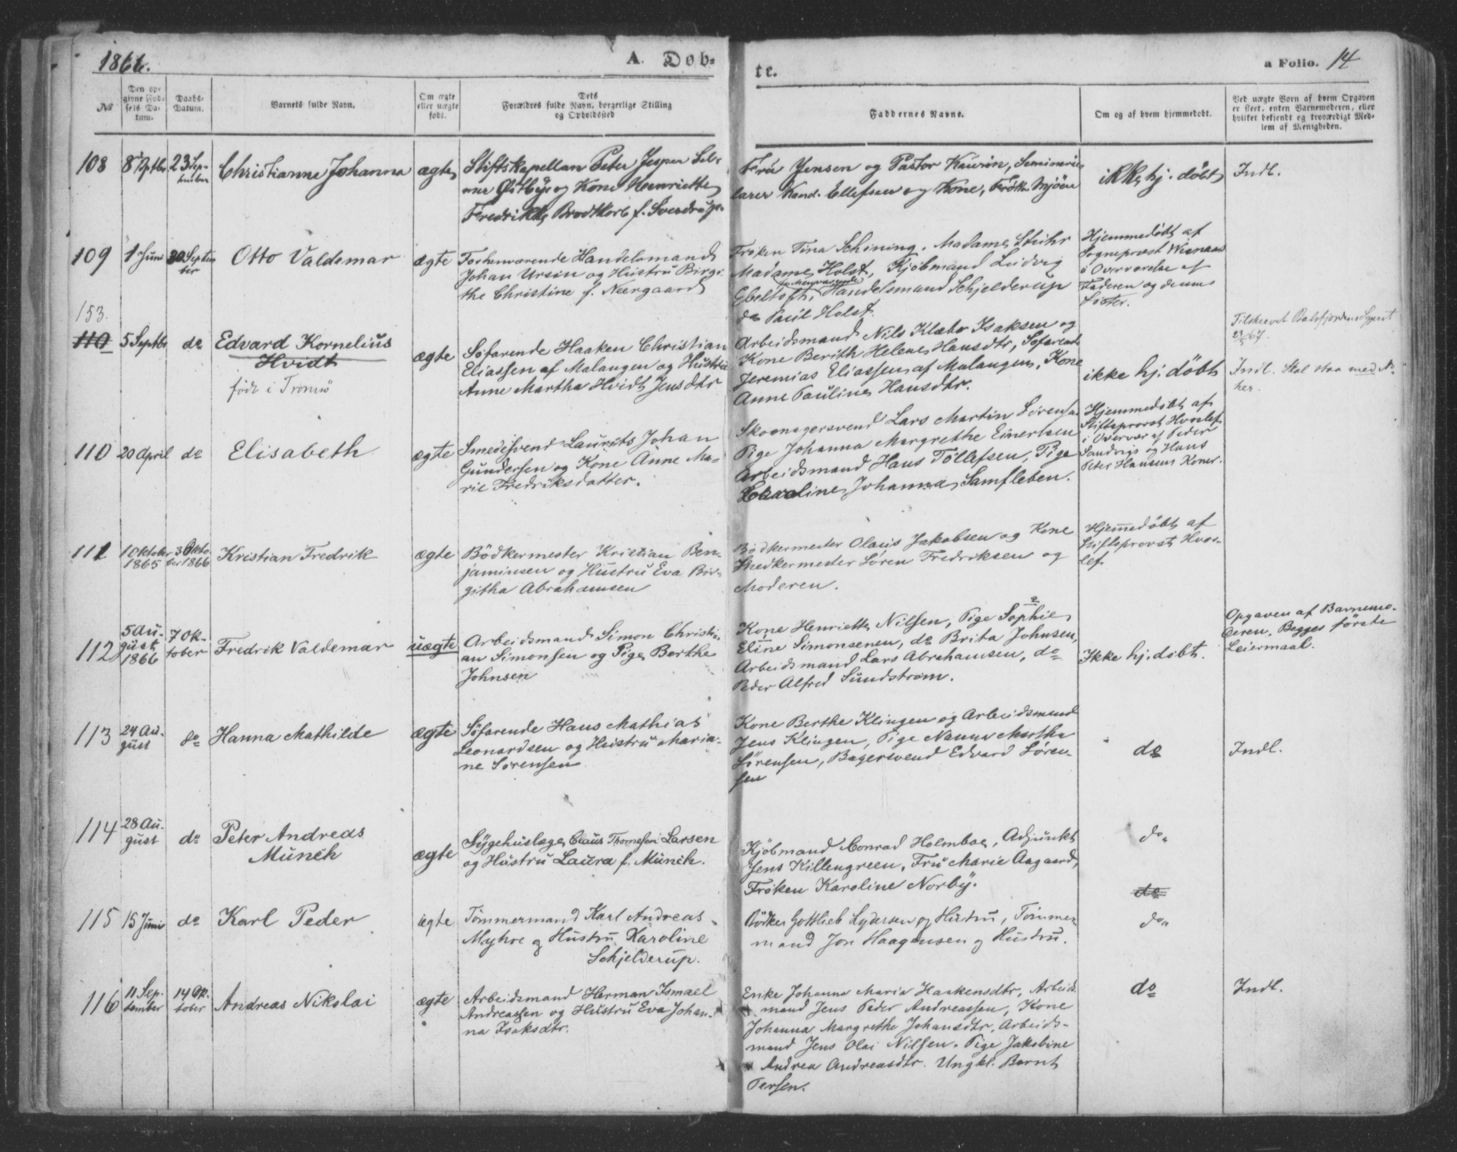 1866.
A. Døb-
te.
a Folio. 14
No
Den op-
givne Fød-
sels Da-
tum.
Daabs-
Datum.
Barnets fulde Navn.
Om ægte
eller uægte
født.
Dets
Forældres fulde Navn, borgerlige Stilling
og Opholdssted
Faddernes Navne.
Om og af hvem hjemmedøbt.
Ved uægte Børn af hvem Opgaven
er skeet, enten Barnemoderen, eller
hvilket bekjendt og troværdigt Med-
lem af Menigheden.
108 8 Septbr 23 Sep-
tember
Christianne Johanna
ægte
Stiftskapellan Peter Jesper Sel-
mer og Kone Henriette
Fredrikke Brodtkorb f. Sverdrup.
Frøken Jensen og Pastor Kaurin, Seminarie-
lærer Kand. Ellefsen og Kone, Frøken Mjöen
ikke hj. døbt
Indl.
109 1 Juni 30 Septem
ber
Otto Valdemar
ægte
Forhenværende Handelsmand
Johan Ursin og Hustru Birgi-
the Christine f. Neergaard
Frøken Tina Schiøning, Madame Stuhr
Madame Holst, Kjöbmand Ludvig
Ebeltoft, Handelsmand Schjelderup
do Paul Holst.
Hjemmedøbt af
Sogneprovst
i Overværelse af
Faderen og dennes
Søster.
153.
110 5 Septbr do
Edvard Kornelius
Hvidt
född i Tromsö
ægte
Søfarende Haaken Christian
Eliassen af Malangen og Hustru
Anne Martha Hvidt Jensdtr
Arbeidsmand Nils Klæbo Isaksen og
Kone Berith Helene Hansdtr, Søfarende
Jeremias Eliassen af Malangen, Kone
Anne Pauline Hansdtr.
ikke hj. döbt
Tilskrevet Balsfjordens Sogne
Indl. Skal staa med N.
her.
110 20 April do
Elisabeth
ægte
Smedesvend Laurits Johan
Gundersen og Kone Anne Ma-
rie Fredriksdatter.
Skomagersvend Lars Martin Sörensen
Pige Johanna Margrethe Einertsen
Arbeidsmand Hans Tollefsen, Pige
Karoline Johanna Samfleben.
Hjemmedøbt af
Stiftsprovst Hvoslef
i Overvær af Peder
og Hans
Peter Hansens Koner.
111 1 Oktober
1865
3 Okto-
ber 1866
Kristian Fredrik
ægte
Bödkermester Kristian Ben-
jaminsen og Hustru Eva Bir-
githa Abrahamsen
Bödkermester Olaus Jakobsen og Kone
Snedkermester Sören Fredriksen og
Moderen.
Hjemmedöbt af
Stiftsprovst Hvos-
lef.
112 5 Au-
gust
1866
7 Ok-
tober
Fredrik Valdemar
uægte
Arbeidsmand Simon Christi-
an Simonsen og Pige Berthe
Johnsen
Kone Henriette Nilsen, Pige Sophie
Eline Simonsenen, do Brita Johnsen,
Arbeidsmand Lars Abrahamsen, do
Peder Alfred Sundström.
Ikke hj. døbt.
Opgaven af Barnemo-
deren. Begges förste
Leiermaal.
113 24 Au-
gust
do
Hanna Mathilde
ægte
Søfarende Hans Mathias
Leonardsen og Hustru Maria-
ne Sørensen
Kone Berthe Klingen og Arbeidsmand
Jens Klingen, Pige Nanna Martha
Sørensen, Bagersvend Edvard Sören
sen
do
Indl.
114 28 Au-
gust
do
Peter Andreas
Munch
ægte
Sygehuslæge Claus Thomesen Larsen
og Hustru Laura f. Munch.
Kjöbmand Conrad Holmboe, Adjunkt
Jens Killengreen, Fru Marie Aagaard,
Frøken Karoline Norby.
do
do
115 15 Juni do
Karl Peder
ægte
Tömmermand Karl Andreas
Myhre og Hustru Karoline
Schjelderup.
Bödker Gottlieb Lydersen og Hustru, Tömmer-
mand Jon Haagensen og Hustru.
do
116 11 Sep-
tember
14 Ok-
tober
Andreas Nikolai
ægte
Arbeidsmand Herman Ismael
Andreassen og Hustru Eva Johan-
na Isaksdtr.
Enke Johanna Maria Haakensdtr, Arbeids
mand Jens Peder Andreassen, Kone
Johanna Margrethe Johansdtr, Arbeids-
mand Jens Olai Nilsen. Pige Jakobine
Andrea Andreasdtr. Ungkl. Bernt
Persen.
do
Indl.